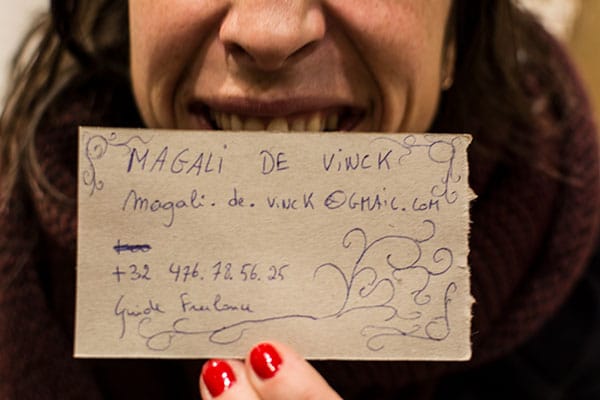 MAGALI DE VINCK
magali.de.vinck@GMAIL.COM
+32 476.78.56.25
Guide Freelance